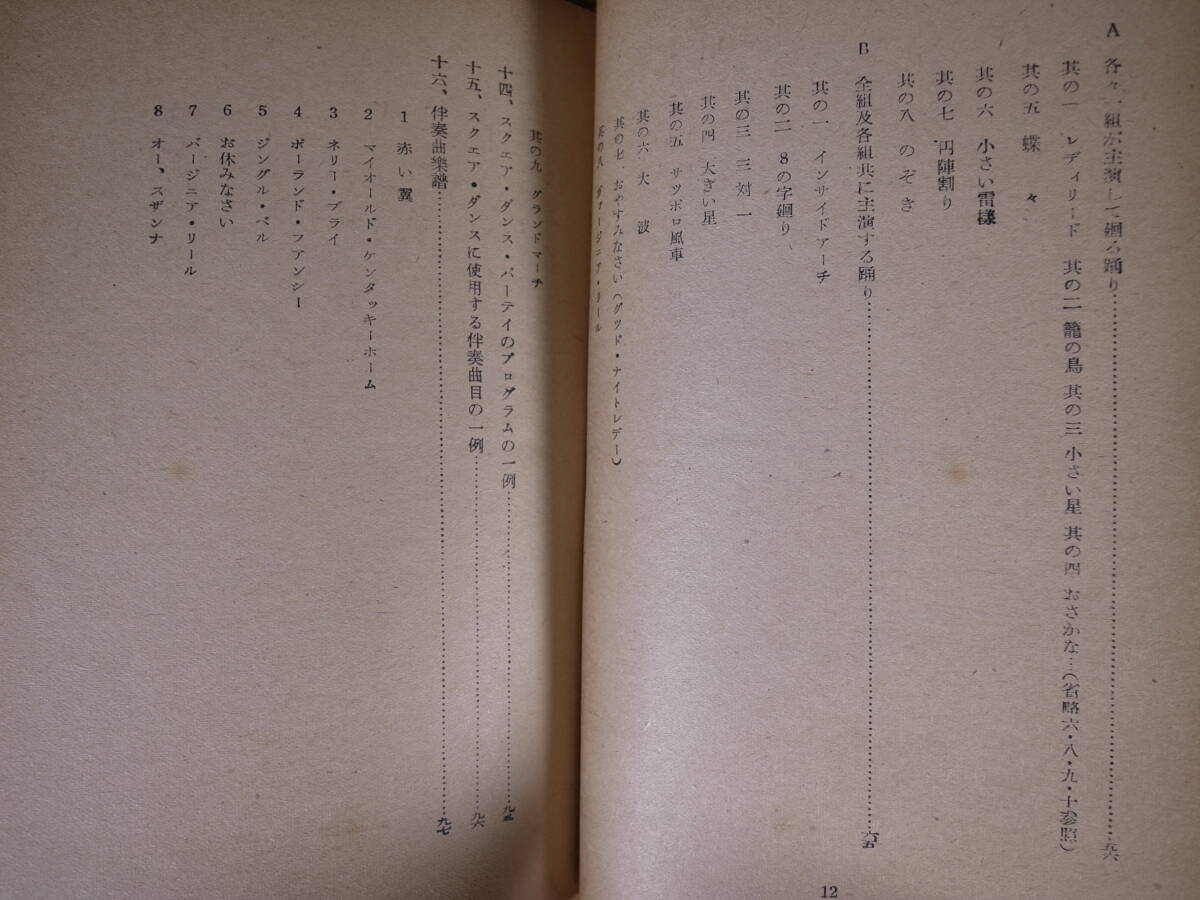 A 各々一組が主演して廻る踊り……五六
其の一 レディリード 其の二 籠の鳥 其の三 小さい星 其の四 おさかな…(省略六・八・九・十参照)
其の五 蝶々
其の六 小さい雷様
其の七 円陣割り
其の八 のぞき
B 全組及各組共に主演する踊り……六五
其の一 インサイドアーチ
其の二 8の字廻り
其の三 三対一
其の四 大きい星
其の五 サツポロ風車
其の六 大波
其の七 おやすみなさい(グツド・ナイトレデー)
其の八 ヴァージニア・リール
其の九 グランドマーチ
十四、スクエア・ダンス・パーテイのプログラムの一例……九五
十五、スクエア・ダンスに使用する伴奏曲目の一例……九六
十六、伴奏曲樂譜……九七
1 赤い翼
2 マイオールド・ケンタッキーホーム
3 ネリー・ブライ
4 ポーランド・フアンシー
5 ジングル・ベル
6 お休みなさい
7 バージニア・リール
8 オー、スザンナ
12